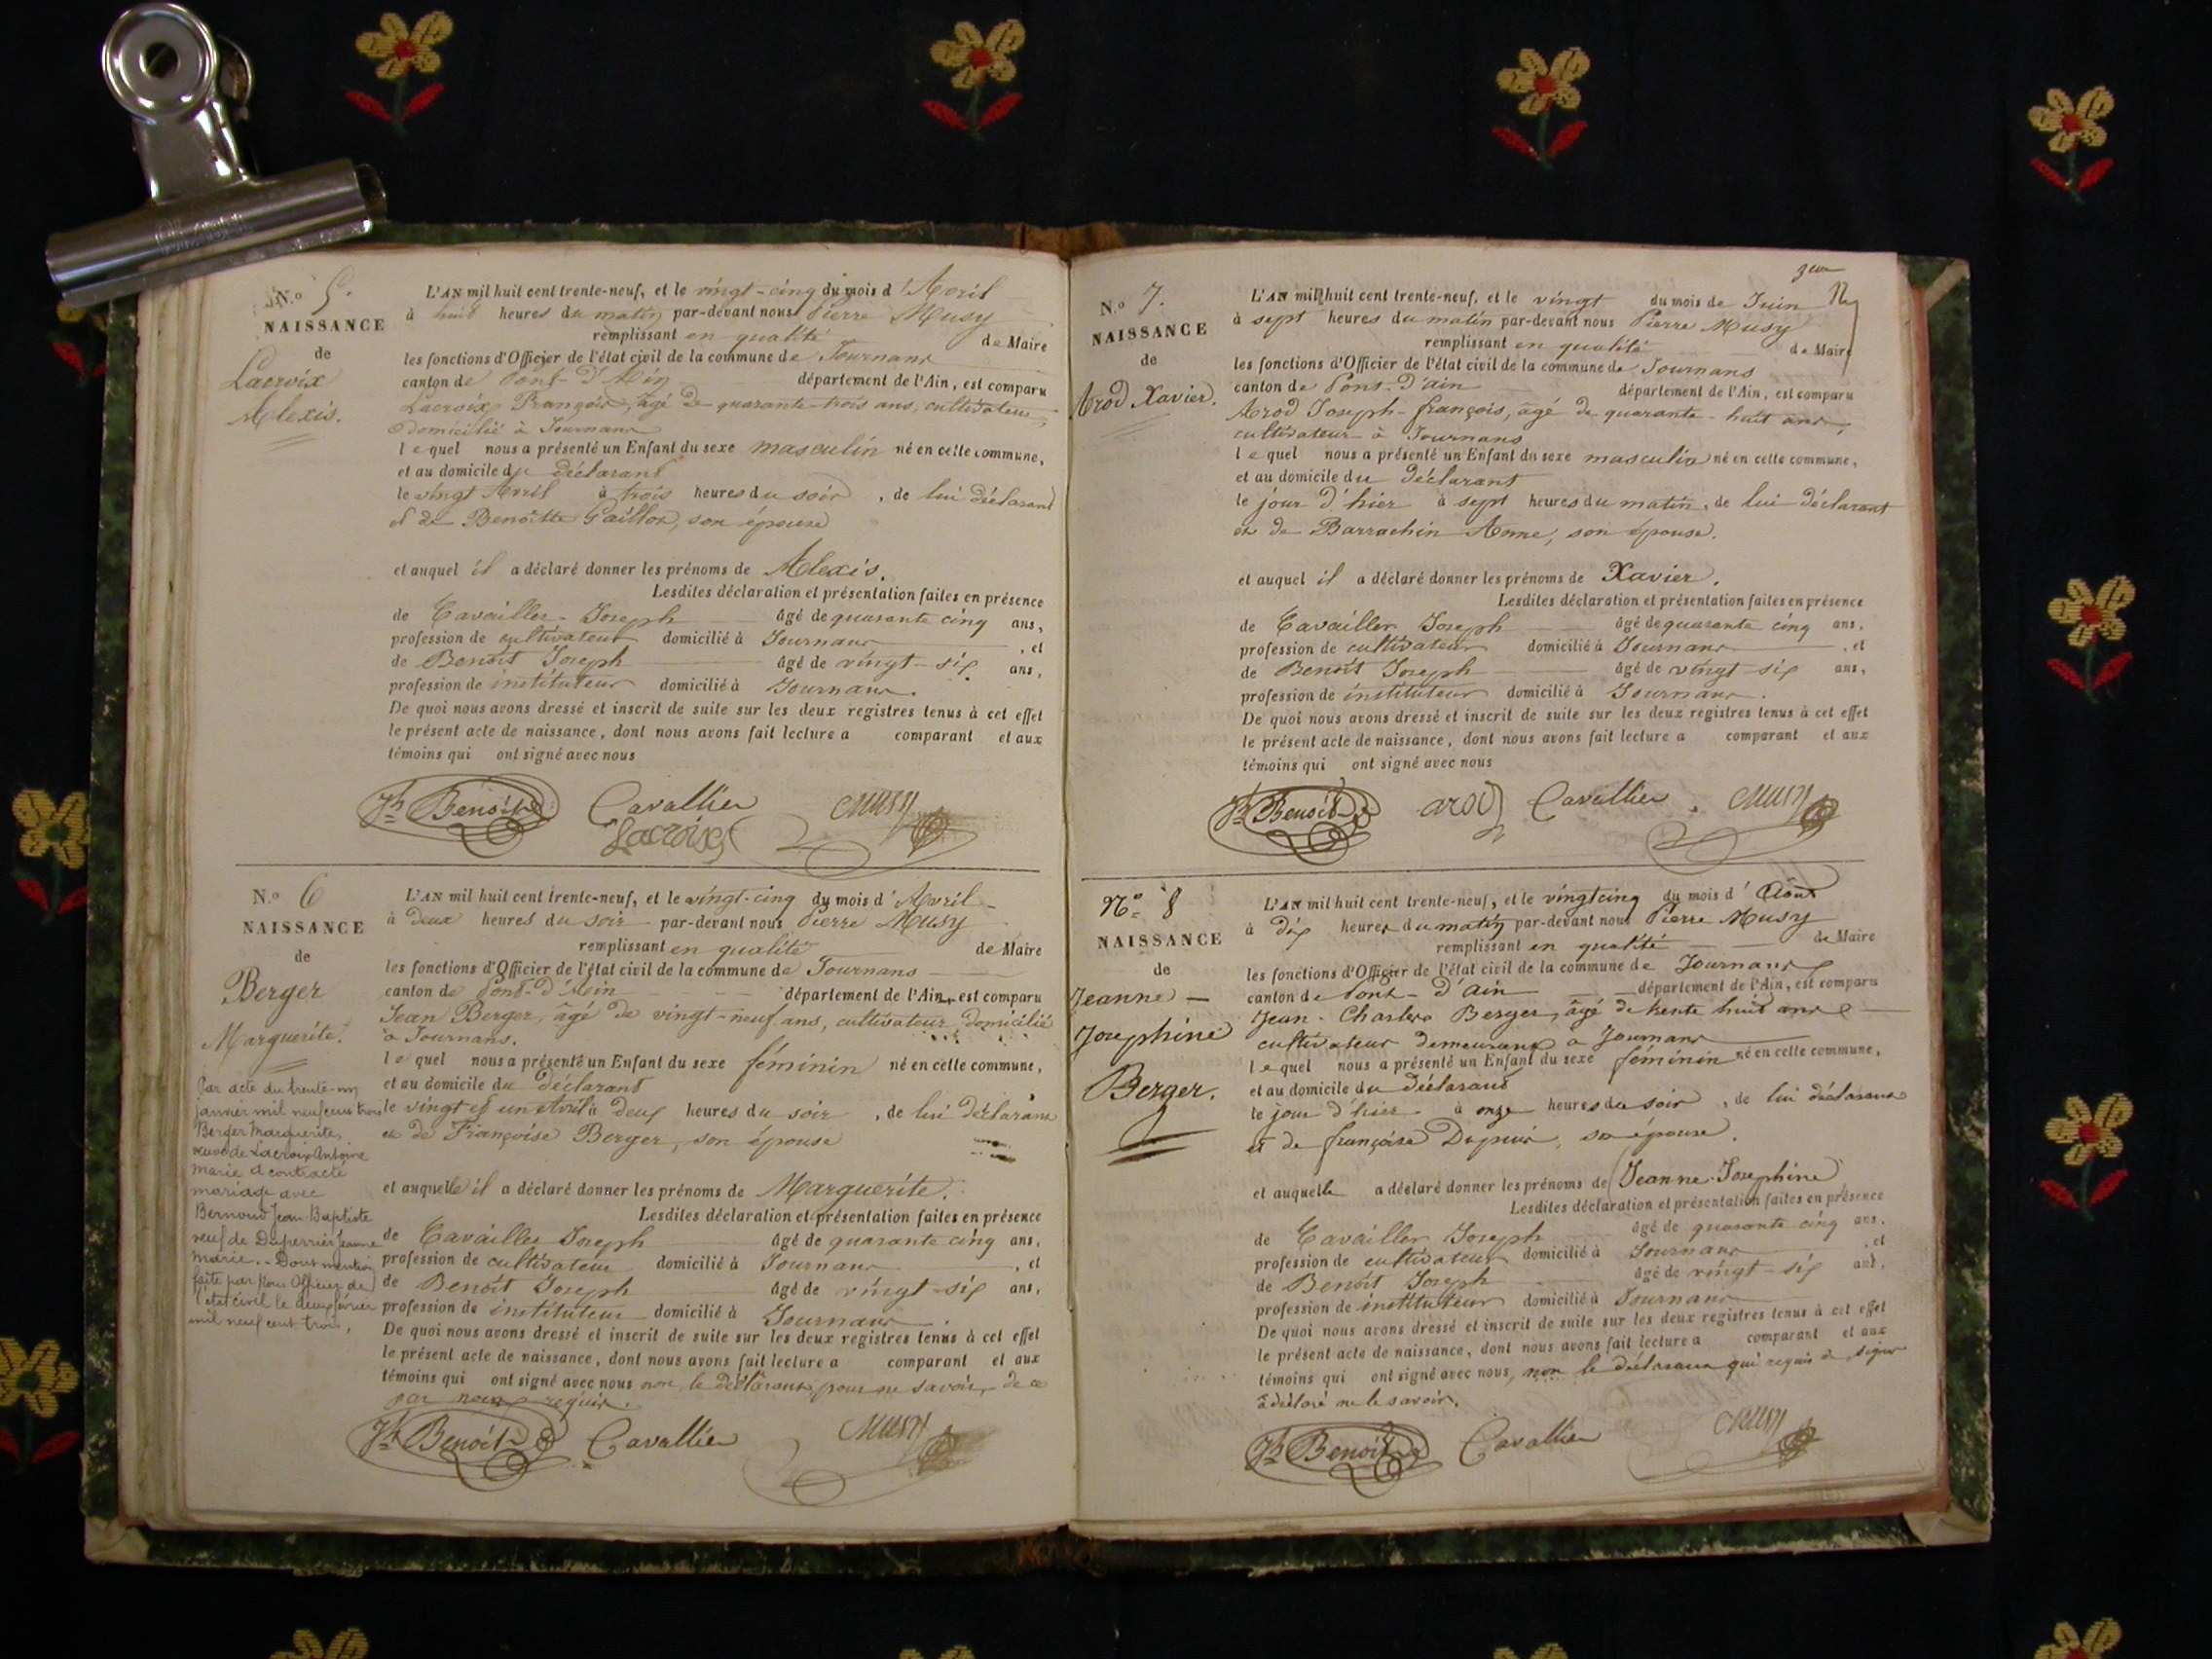 N.o 5.
NAISSANCE
de
Lacroix
Alexis.
L'AN mil huit cent trente-neuf, et le vingt-cinq du mois d'Avril
à huit heures du matin par-devant nous Pierre Musy
remplissant en qualité de Maire
les fonctions d'Officier de l'état civil de la commune de Journans
canton de Pont-d'Ain département de l'Ain, est comparu
Lacroix François, âgé de quarante-trois ans, cultivateur
domicilié à Journans
lequel nous a présenté un Enfant du sexe masculin né en cette commune,
et au domicile du déclarant
le vingt Avril à trois heures du soir, de lui déclarant
et de Benoitte Gaillon, son épouse
et auquel il a déclaré donner les prénoms de Alexis.
Lesdites déclaration et présentation faites en présence
de Cavailler Joseph âgé de quarante cinq ans,
profession de cultivateur domicilié à Journans, et
de Benoît Joseph âgé de vingt-six ans,
profession de instituteur domicilié à Journans.
De quoi nous avons dressé et inscrit de suite sur les deux registres tenus à cet effet
le présent acte de naissance, dont nous avons fait lecture a comparant et aux
témoins qui ont signé avec nous
Jh Benoit Cavallier Musy
Lacroix
N.o 6
NAISSANCE
de
Berger
Marguerite.
Par acte du trente-un
janvier mil neuf cent trois
Berger Marguerite,
veuve de Lacroix Antoine
Marie a contracté
mariage avec
Bernoud Jean Baptiste
veuf de Duperrier Jeanne
Marie. - Dont mention
faite par Nous Officier de
l'état civil le deux février
mil neuf cent trois.
L'AN mil huit cent trente-neuf, et le vingt-cinq du mois d'Avril
à deux heures du soir par-devant nous Pierre Musy
remplissant en qualité de Maire
les fonctions d'Officier de l'état civil de la commune de Journans
canton de Pont-d'Ain département de l'Ain, est comparu
Jean Berger, âgé de vingt-neuf ans, cultivateur, domicilié
à Journans.
lequel nous a présenté un Enfant du sexe féminin né en cette commune,
et au domicile du déclarant
le vingt et un Avril à deux heures du soir, de lui déclarant
et de Françoise Berger, son épouse
et auquelle il a déclaré donner les prénoms de Marguerite.
Lesdites déclaration et présentation faites en présence
de Cavailler Joseph âgé de quarante cinq ans,
profession de cultivateur domicilié à Journans, et
de Benoît Joseph âgé de vingt-six ans,
profession de instituteur domicilié à Journans.
De quoi nous avons dressé et inscrit de suite sur les deux registres tenus à cet effet
le présent acte de naissance, dont nous avons fait lecture a comparant et aux
témoins qui ont signé avec nous non le déclarant, pour ne savoir, de ce
par nous requis.
Jh Benoit Cavallier Musy
N.o 7.
NAISSANCE
de
Arod Xavier.
L'AN mil huit cent trente-neuf, et le vingt du mois de Juin
à sept heures du matin par-devant nous Pierre Musy
remplissant en qualité de Maire
les fonctions d'Officier de l'état civil de la commune de Journans
canton de Pont-d'ain département de l'Ain, est comparu
Arod Joseph-françois, âgé de quarante-huit ans,
cultivateur à Journans
lequel nous a présenté un Enfant du sexe masculin né en cette commune,
et au domicile du déclarant
le jour d'hier à sept heures du matin, de lui déclarant
et de Barrachin Anne, son épouse.
et auquel il a déclaré donner les prénoms de Xavier.
Lesdites déclaration et présentation faites en présence
de Cavailler Joseph âgé de quarante cinq ans,
profession de cultivateur domicilié à Journans, et
de Benoît Joseph âgé de vingt-six ans,
profession de instituteur domicilié à Journans.
De quoi nous avons dressé et inscrit de suite sur les deux registres tenus à cet effet
le présent acte de naissance, dont nous avons fait lecture a comparant et aux
témoins qui ont signé avec nous
Jh Benoit arod Cavallier Musy
No 8
NAISSANCE
de
Jeanne-
Josephine
Berger.
L'AN mil huit cent trente-neuf, et le vingt cinq du mois d'Août
à dix heures du matin par-devant nous Pierre Musy
remplissant en qualité de Maire
les fonctions d'Officier de l'état civil de la commune de Journans
canton de Pont-d'ain département de l'Ain, est comparu
Jean-Charles Berger, âgé de trente huit ans
cultivateur demeurant à Journans
lequel nous a présenté un Enfant du sexe féminin né en cette commune,
et au domicile du déclarant
le jour d'hier à onze heures du soir, de lui déclarant
et de françoise Dupuis, son épouse.
et auquelle a déclaré donner les prénoms de Jeanne-Josephine
Lesdites déclaration et présentation faites en présence
de Cavailler Joseph âgé de quarante cinq ans,
profession de cultivateur domicilié à Journans, et
de Benoît Joseph âgé de vingt-six ans,
profession de instituteur domicilié à Journans
De quoi nous avons dressé et inscrit de suite sur les deux registres tenus à cet effet
le présent acte de naissance, dont nous avons fait lecture a comparant et aux
témoins qui ont signé avec nous, non le déclarant qui requis de signer
a déclaré ne le savoir.
Jh Benoit Cavallier Musy